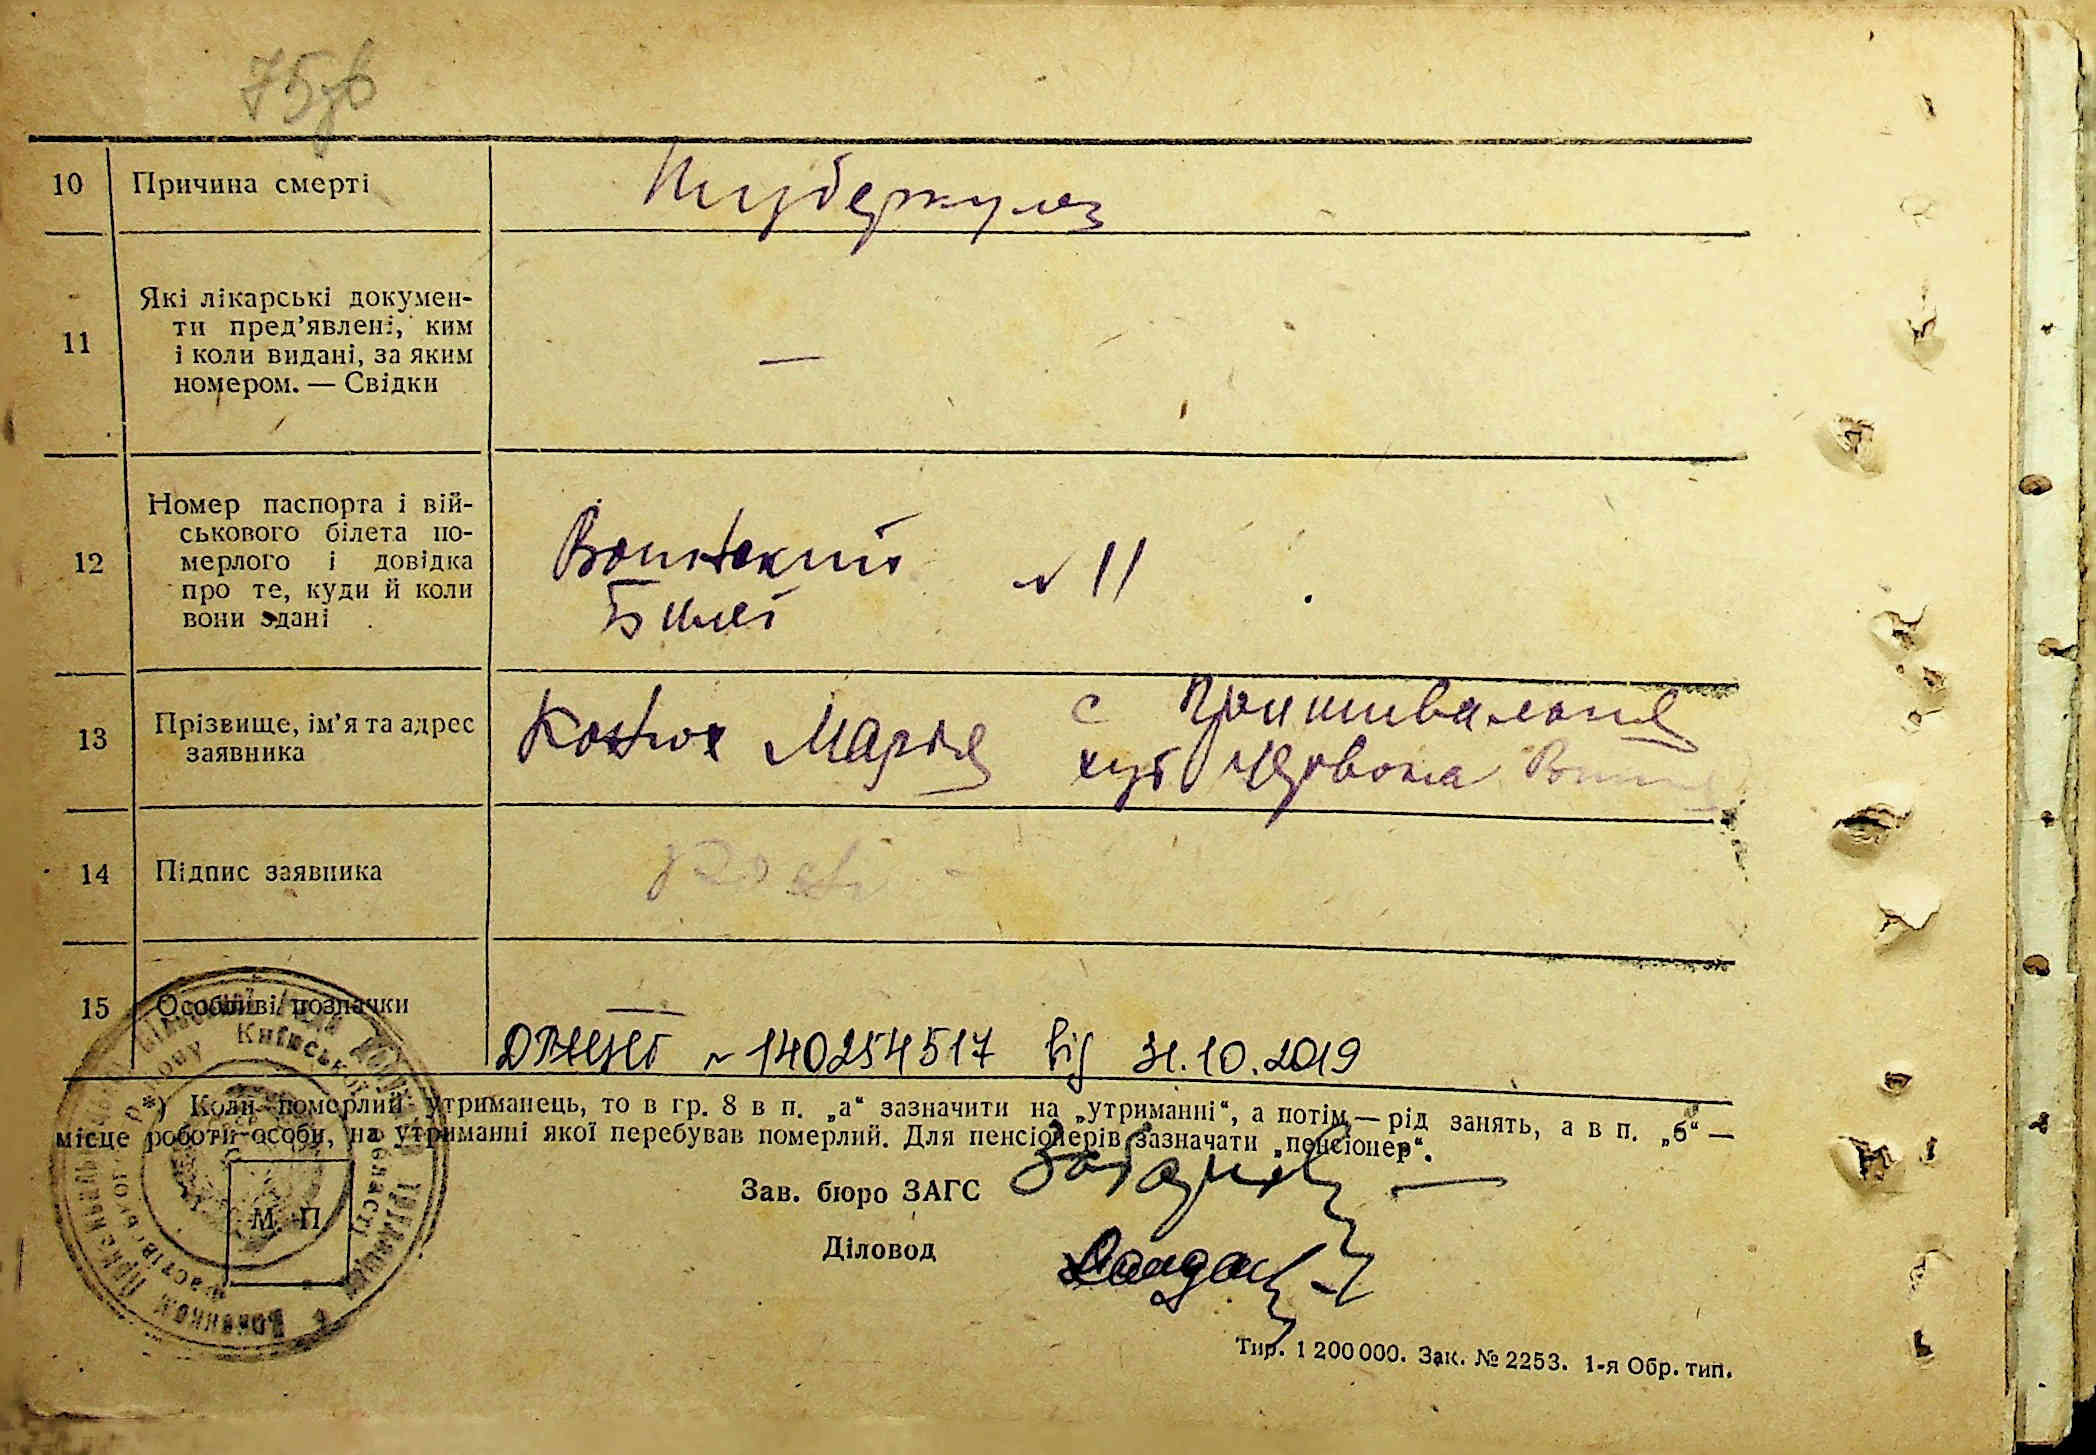 75зв
10 Причина смерті Туберкулез
11 Які лікарські докумен-
ти пред'явлені, ким
і коли видані, за яким
номером. — Свідки —
12 Номер паспорта і вій-
ськового білета по-
мерлого і довідка
про те, куди й коли
вони здані
Воинский № 11
Билет
13 Прізвище, ім'я та адрес
заявника
Марія с
хут Червона
14 Підпис заявника
15 Особливі позначки —
№ 140254517 від 31.10.2019
*) Коли померлий утриманець, то в гр. 8 в п. „а“ зазначити на „утриманні“, а потім — рід занять, а в п. „б“ —
місце роботи особи, на утриманні якої перебував померлий. Для пенсіонерів зазначати „пенсіонер“.
Зав. бюро ЗАГС
М. П.
Діловод
Тир. 1 200 000. Зак. № 2253. 1-я Обр. тип.